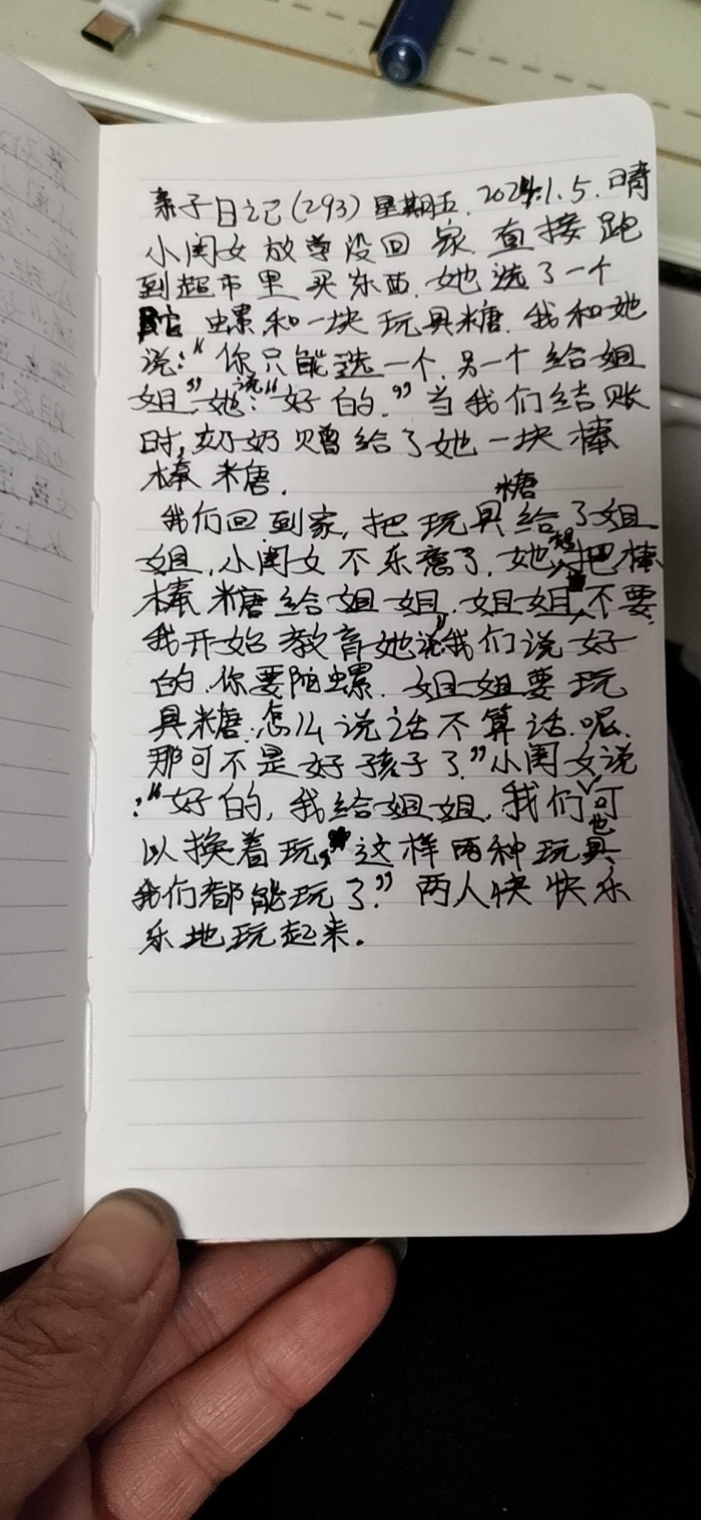 亲子日记(293)星期五.2024.1.5.晴
小闺女放学没回家.直接跑
到超市里买东西.她选了一个
陀螺和一块玩具糖.我和她
说:“你只能选一个.另一个给姐
姐.”她说:“好的.”当我们结账
时,奶奶赠给了她一块棒
棒糖.
我们回到家,把玩具糖给了姐
姐.小闺女不乐意了.她想把棒
棒糖给姐姐.姐姐不要.
我开始教育她说“我们说好
的.你要陀螺.姐姐要玩
具糖.怎么说话不算话.呢.
那可不是好孩子了.”小闺女说
:“好的,我给姐姐.我们也可
以换着玩,这样两种玩具
我们都能玩了.”两人快快乐
乐地玩起来.